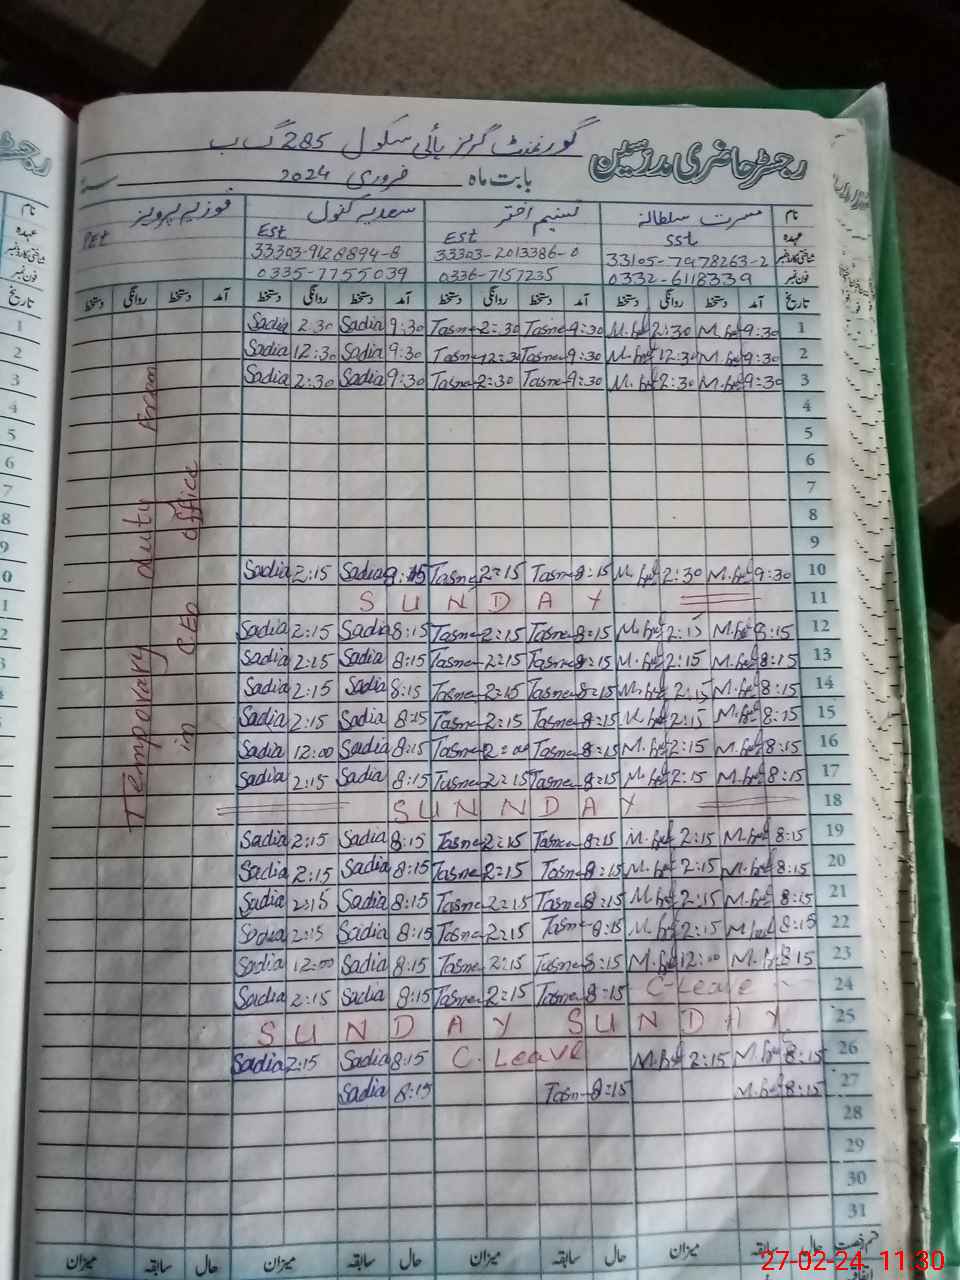 رجسٹر حاضری مدرسین گورنمنٹ گرلز ہائی سکول 285 گ ب
بابت ماہ فروری 2024 سنہ
نام مسرت سلطانہ تسنیم اختر سعدیہ کنول فوزیہ پرویز
عہدہ SSt Est Est PEt
شناختی کارڈ نمبر 33105-7978263-2 33303-2013386-0 33303-9128894-8
فون نمبر 0332-6118339 0336-7157235 0335-7755039
تاریخ آمد دستخط روانگی دستخط آمد دستخط روانگی دستخط آمد دستخط روانگی دستخط آمد دستخط روانگی دستخط
Sadia 2:30 Sadia 9:30 Tasne 2:30 Tasne 9:30 2:30 9:30 1
Sadia 12:30 Sadia 9:30 Tasne 12:30 Tasne 9:30 12:30 9:30 2
Sadia 2:30 Sadia 9:30 Tasne 2:30 Tasne 9:30 2:30 9:30 3
4
5
6
7
8
9
Sadia 2:15 Sadia Tasne 2:15 Tasne 8:15 2:30 9:30 10
SUNDAY 11
Sadia 2:15 Sadia 8:15 Tasne 2:15 Tasne 8:15 2:15 8:15 12
Sadia 2:15 Sadia 8:15 Tasne 2:15 Tasne 8:15 2:15 8:15 13
Sadia 2:15 Sadia 8:15 Tasne 2:15 Tasne 8:15 2:15 8:15 14
Sadia 2:15 Sadia 8:15 Tasne 2:15 Tasne 8:15 2:15 8:15 15
Sadia 12:00 Sadia 8:15 Tasne Tasne 8:15 2:15 8:15 16
Sadia 2:15 Sadia 8:15 Tasne 2:15 Tasne 8:15 2:15 8:15 17
SUNNDAY 18
Sadia 2:15 Sadia 8:15 Tasne 2:15 Tasne 8:15 2:15 8:15 19
Sadia 2:15 Sadia 8:15 Tasne 2:15 Tasne 8:15 2:15 8:15 20
Sadia 2:15 Sadia 8:15 Tasne 2:15 Tasne 8:15 2:15 8:15 21
Sadia 2:15 Sadia 8:15 Tasne 2:15 Tasne 8:15 2:15 8:15 22
Sadia 12:00 Sadia 8:15 Tasne 2:15 Tasne 8:15 12:00 8:15 23
Sadia 2:15 Sadia 8:15 Tasne 2:15 Tasne 8:15 C-Leave 24
SUNDAY SUNDAY 25
Sadia 2:15 Sadia 8:15 C. Leave 2:15 8:15 26
Sadia 8:15 Tasn 8:15 8:15 27
28
29
30
31
Temporary duty from
in CEO office
سابقہ میزان حال سابقہ میزان حال سابقہ میزان حال سابقہ میزان
27-02-24 11:30